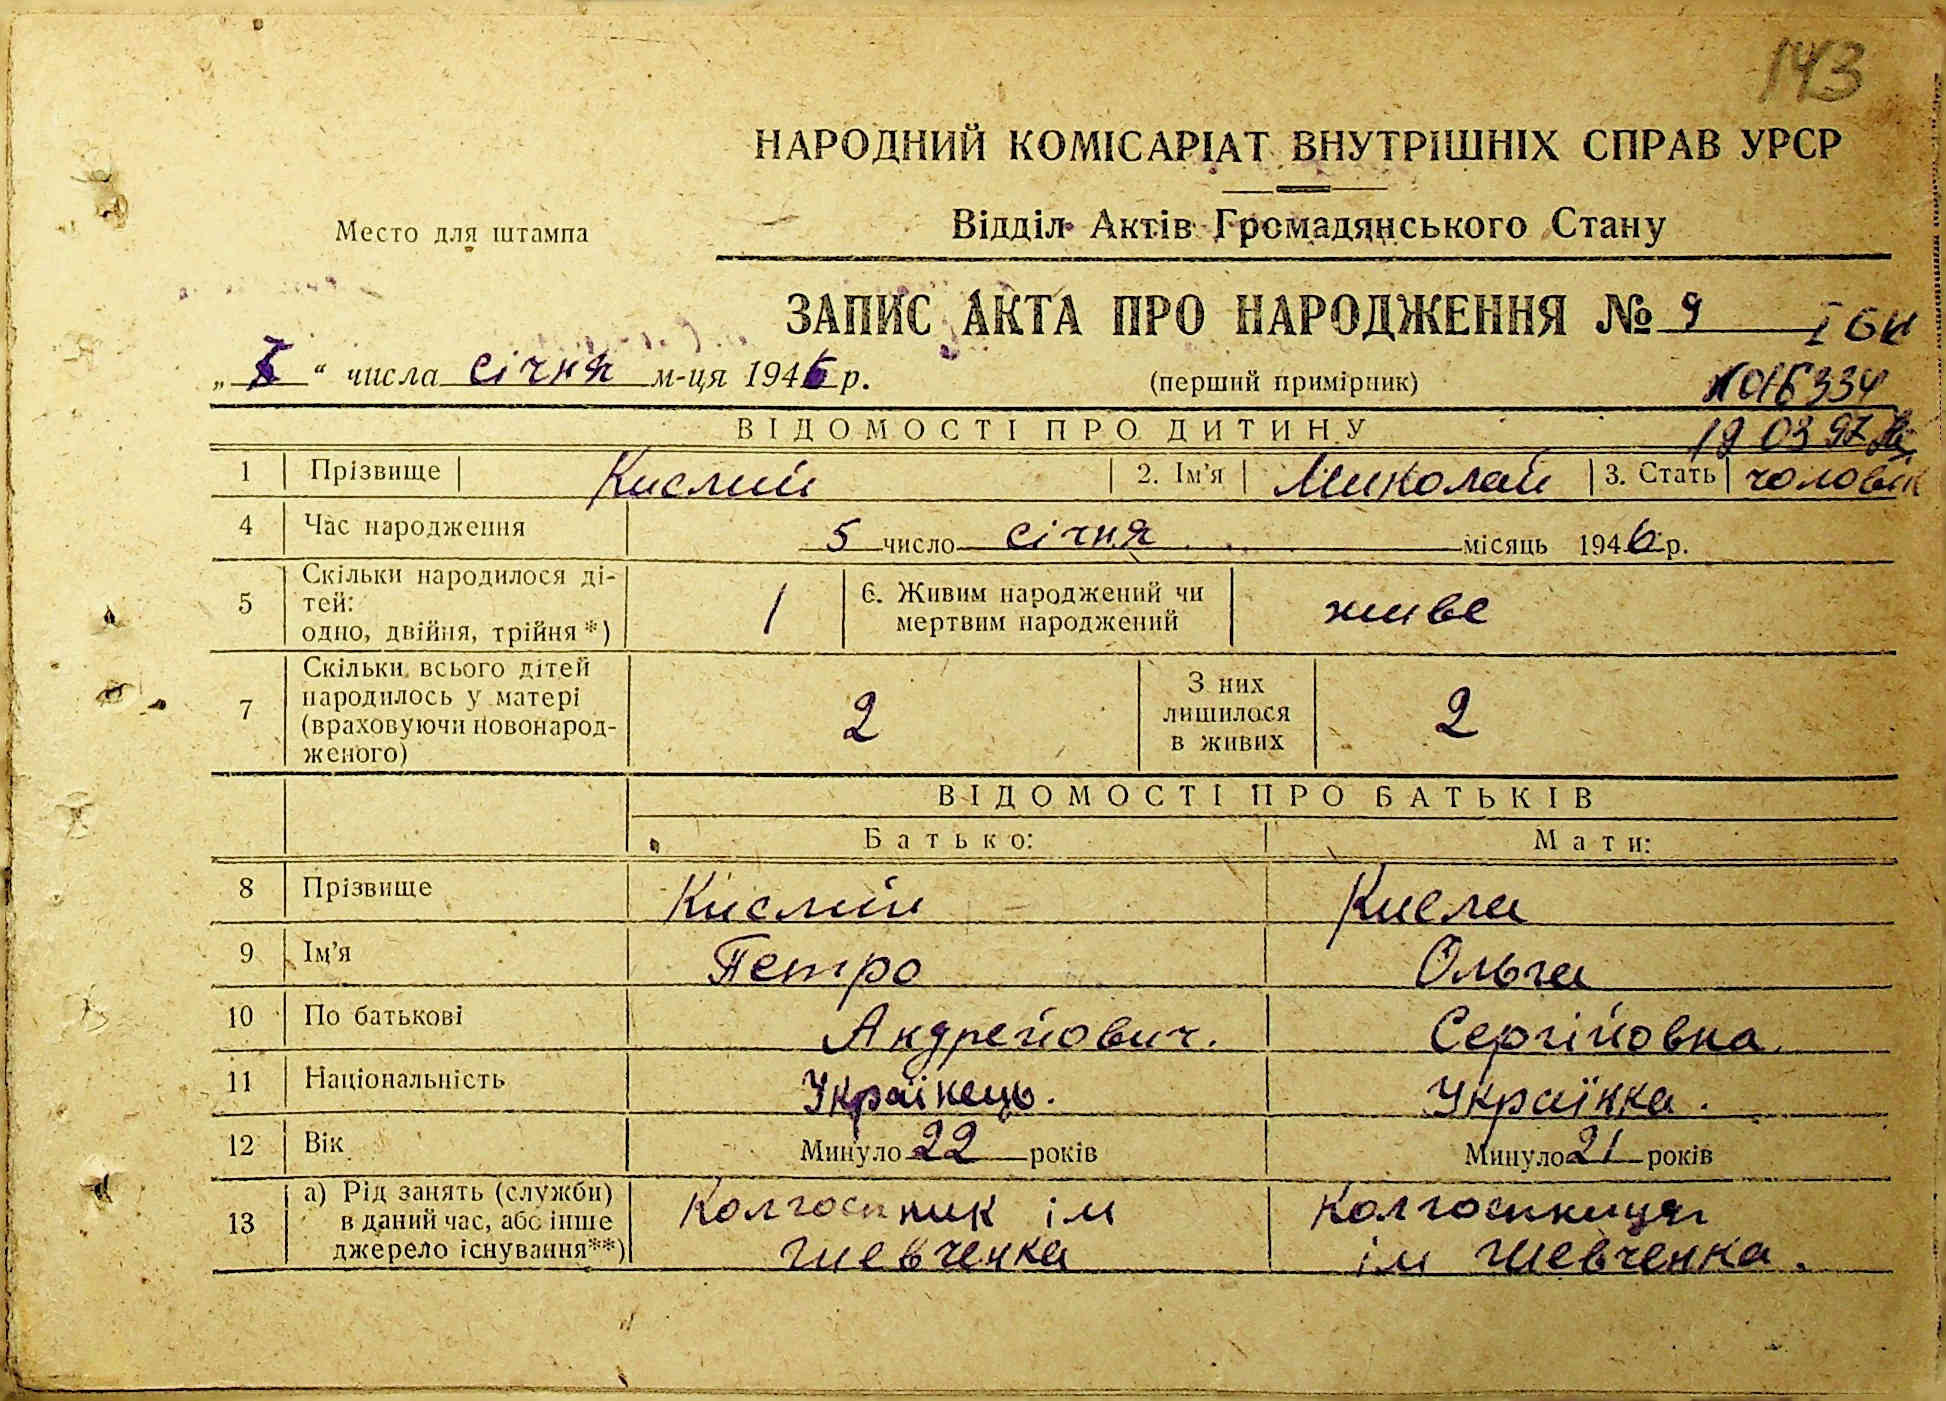 143
НАРОДНИЙ КОМІСАРІАТ ВНУТРІШНІХ СПРАВ УРСР
Место для штампа
Відділ Актів Громадянського Стану
ЗАПИС АКТА ПРО НАРОДЖЕННЯ № 9
„ “ числа січня м-ця 1946 р.
(перший примірник)
19 03 97
ВІДОМОСТІ ПРО ДИТИНУ
1 Прізвище Кислий 2. Ім'я Миколай 3. Стать чоловік
4 Час народження 5 число січня місяць 1946 р.
5 Скільки народилося ді-
тей:
одно, двійня, трійня *) 1
6. Живим народжений чи
мертвим народжений живе
7 Скільки всього дітей
народилось у матері
(враховуючи новонарод-
женого) 2
З них
лишилося
в живих 2
ВІДОМОСТІ ПРО БАТЬКІВ
Батько: Мати:
8 Прізвище Кислий Кисла
9 Ім'я Петро Ольга
10 По батькові Андрейович. Сергійовна
11 Національність Українець. Українка.
12 Вік Минуло 22 років Минуло 21 років
13 а) Рід занять (служби)
в даний час, або інше
джерело існування**)
Колгоспник ім Колгоспниця
Шевченка ім Шевченка.